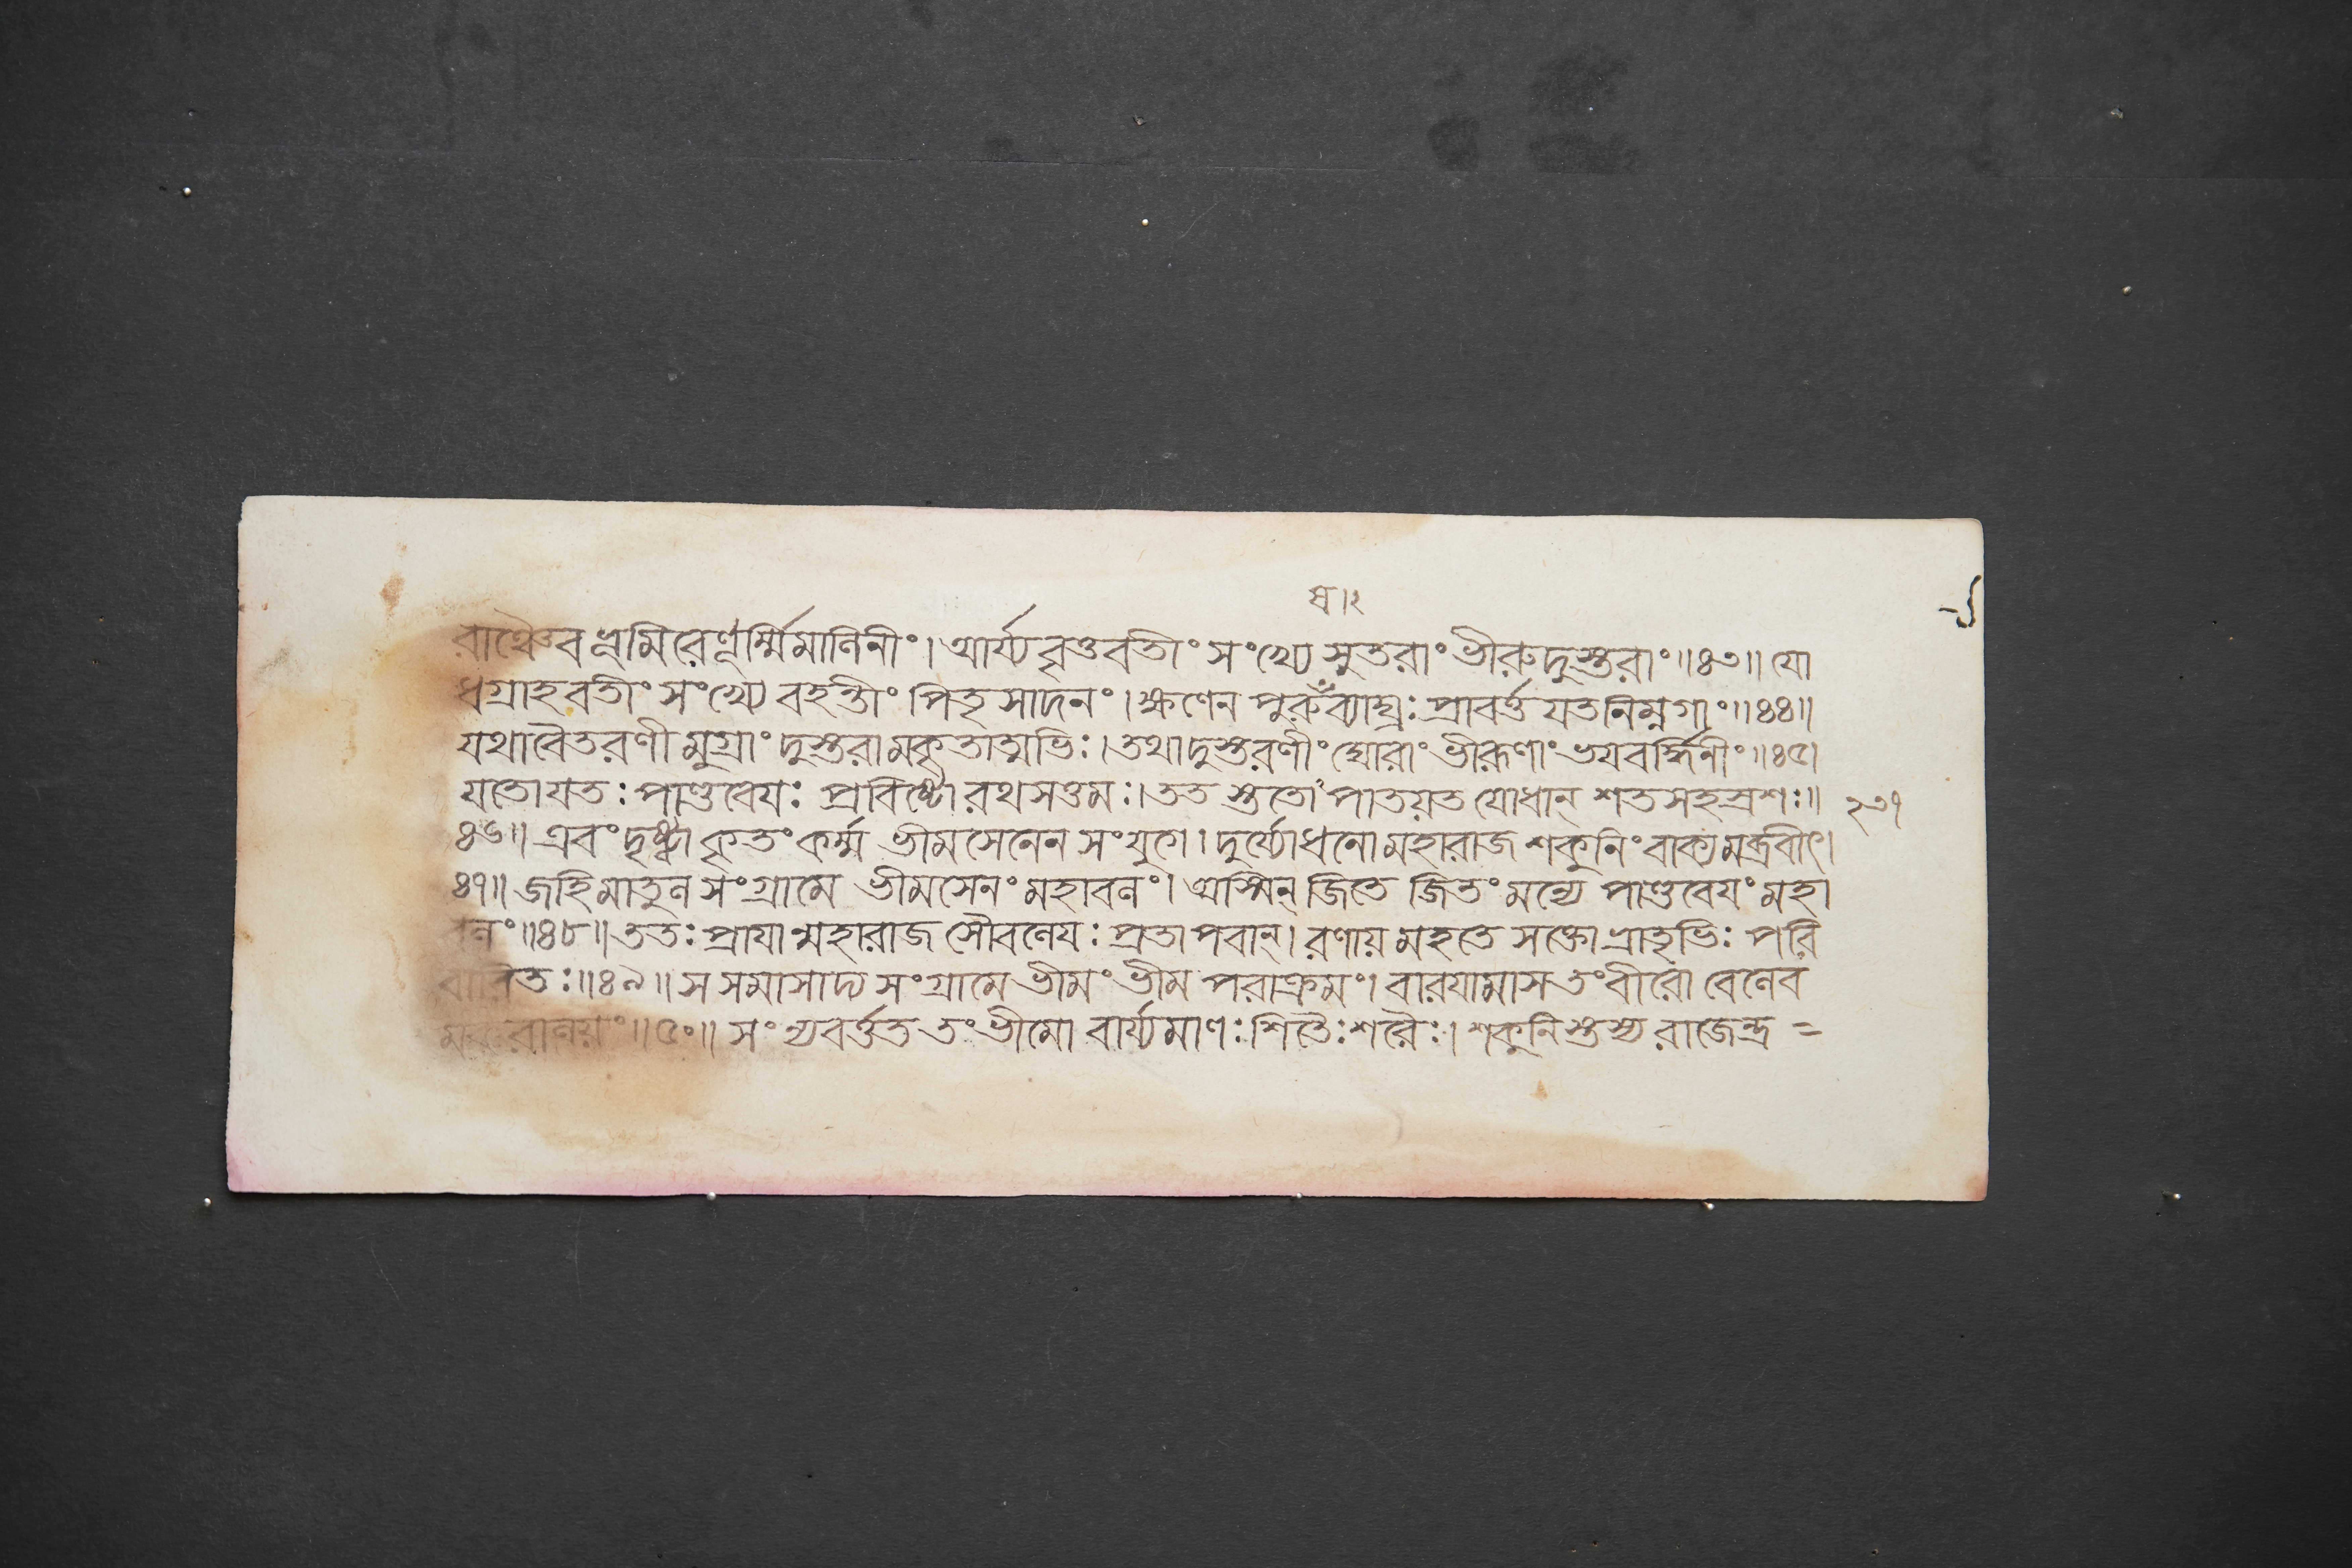 ষ।২
রাঞ্চৈব ধ্নুমিরেণূর্ম্মিমালিনীং। আর্য্যবৃত্তবতীং সংখ্যে সুতরাং ভীরুদুস্তরাং॥৪৩॥ যো
ধগ্রাহবতীং সংখ্যে বহন্তীং পিতৃসাদনং। ক্ষণেন পুরুষব্যাঘ্রঃ প্রাবর্ত্তযতনিম্নগাং॥৪৪॥
যথাবৈতরণী মুগ্রাং দুস্তরামকৃতাত্মভিঃ। তথাদুস্তরণীং ঘোরাং ভীরূণাং ভযবর্দ্ধিনীং॥৪৫।
যতোযতঃ পাণ্ডবেযঃ প্রবিষ্টো রথসত্তমঃ। তত স্ততোঽপাতয়ত যোধান্ শতসহস্রশঃ॥
২৩৭
৪৬॥ এবং দৃষ্ট্বা কৃতং কর্ম্ম ভীমসেনেন সংযুগে। দুর্য্যোধনো মহারাজ শকুনিং বাক্যমব্রবীৎ।
৪৭॥ জহি মাতুল সংগ্রামে ভীমসেনং মহাবলং। অস্মিন্ জিতে জিতং মন্যে পাণ্ডবেযং মহা
বলং॥৪৮॥ ততঃ প্রাযা ন্মহারাজ সৌবলেযঃ প্রতাপবান্। রণায় মহতে সক্তো ভ্রাতৃভিঃ পরি
বারিতঃ॥৪৯॥ স সমাসাদ্য সংগ্রামে ভীমং ভীম পরাক্রমং। বারযামাস তংবীরো বেলেব
মকরালয়ং॥৫০॥ সংন্যবর্ত্তত তংভীমো বার্য্যমাণঃ শিতৈঃশরৈঃ। শকুনিস্তস্য রাজেন্দ্র =